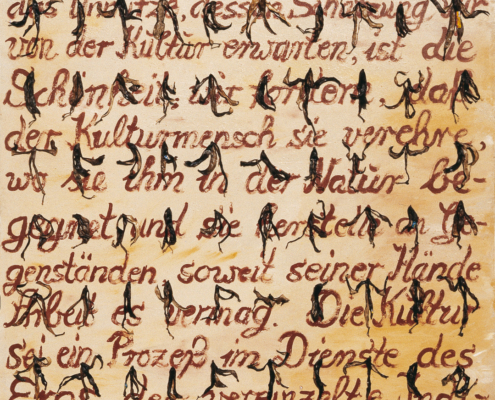 das Unnütze, dessen Schätzung wir
von der Kultur erwarten, ist die
Schönheit; wir fordern, daß
der Kulturmensch sie verehre,
wo sie ihm in der Natur be-
gegnet, und sie herstelle an Ge-
genständen soweit seiner Hände
Arbeit es vermag. Die Kultur
sei ein Prozeß im Dienste des
Eros, der vereinzelte indi-